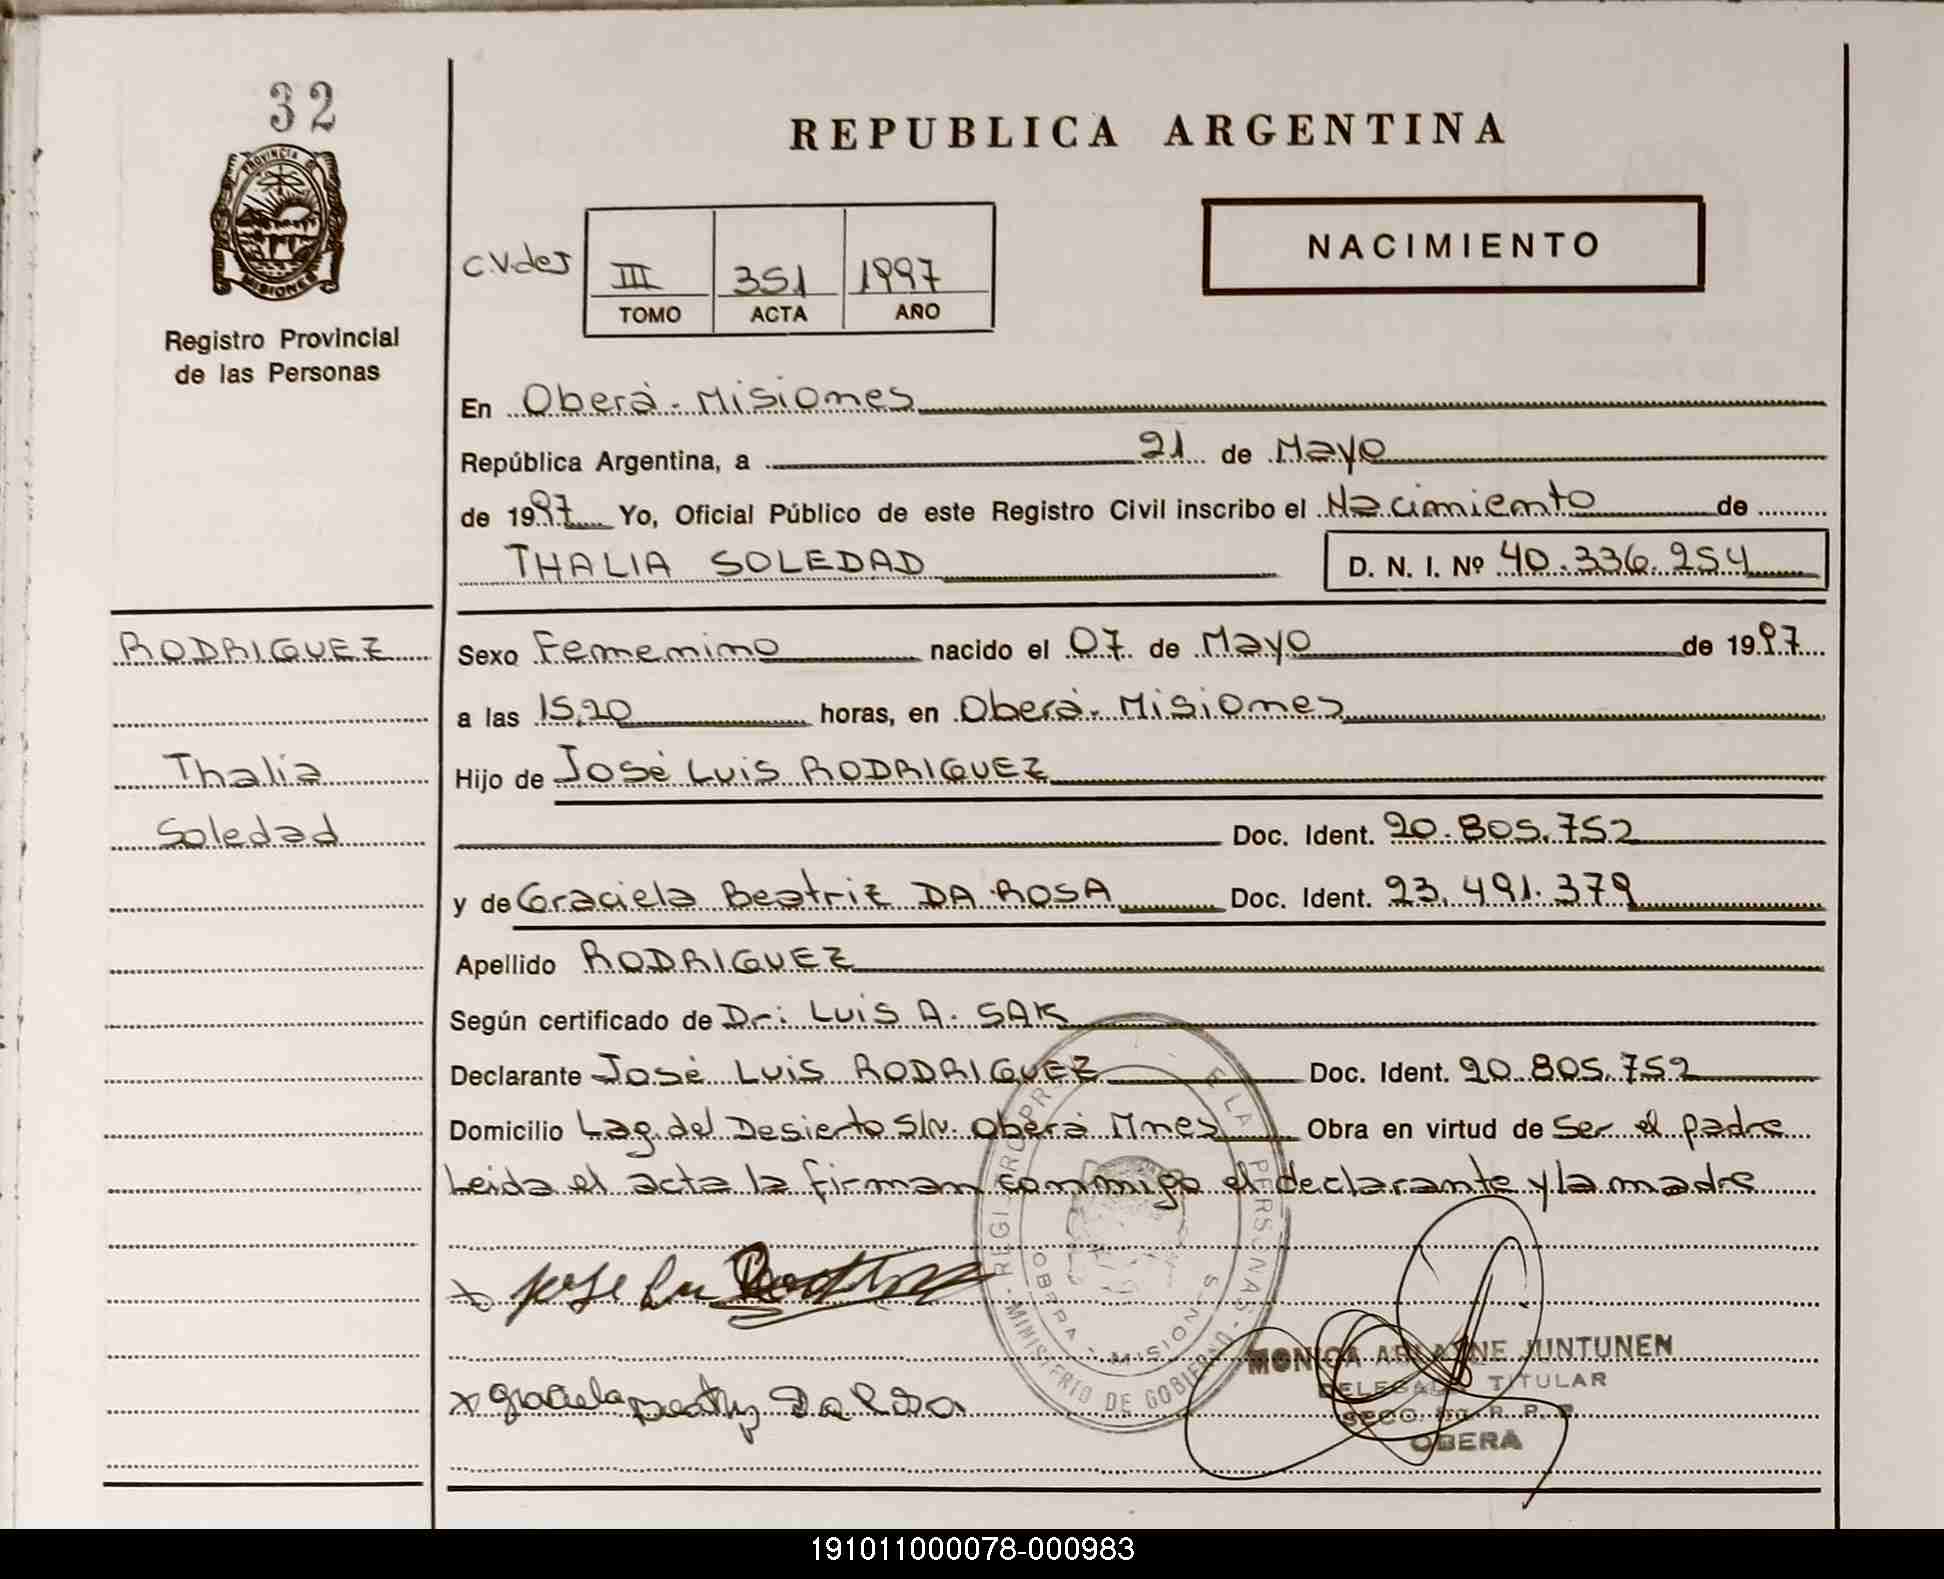 32
PROVINCIA DE
MISIONES
Registro Provincial
de las Personas
REPUBLICA ARGENTINA
NACIMIENTO
C.V.deJ
III 351 1997
TOMO ACTA AÑO
En Oberá - Misiones
República Argentina, a 21 de Mayo
de 1997 Yo, Oficial Público de este Registro Civil inscribo el Nacimiento de
THALIA SOLEDAD D. N. I. Nº 40.336.254
RODRIGUEZ
Thalia
Soledad
Sexo Femenino nacido el 07 de Mayo de 1997
a las 15,20 horas, en Oberá - Misiones
Hijo de José Luis RODRIGUEZ
Doc. Ident. 20.805.752
y de Graciela Beatriz DA ROSA Doc. Ident. 23.491.379
Apellido RODRIGUEZ
Según certificado de Dr: Luis A. SAK
Declarante José Luis RODRIGUEZ Doc. Ident. 20.805.752
Domicilio Lag. del Desierto S/N. Oberá Mnes Obra en virtud de Ser el padre
Leida el acta la firman conmigo el declarante y la madre
x Jose Lu
x graciela beatriz Da Rosa
MINISTERIO DE GOBIERNO
OBERA - MISIONES
MONICA ARIADNE JUNTUNEN
DELEGADA TITULAR
R. P. P.
OBERA
191011000078-000983